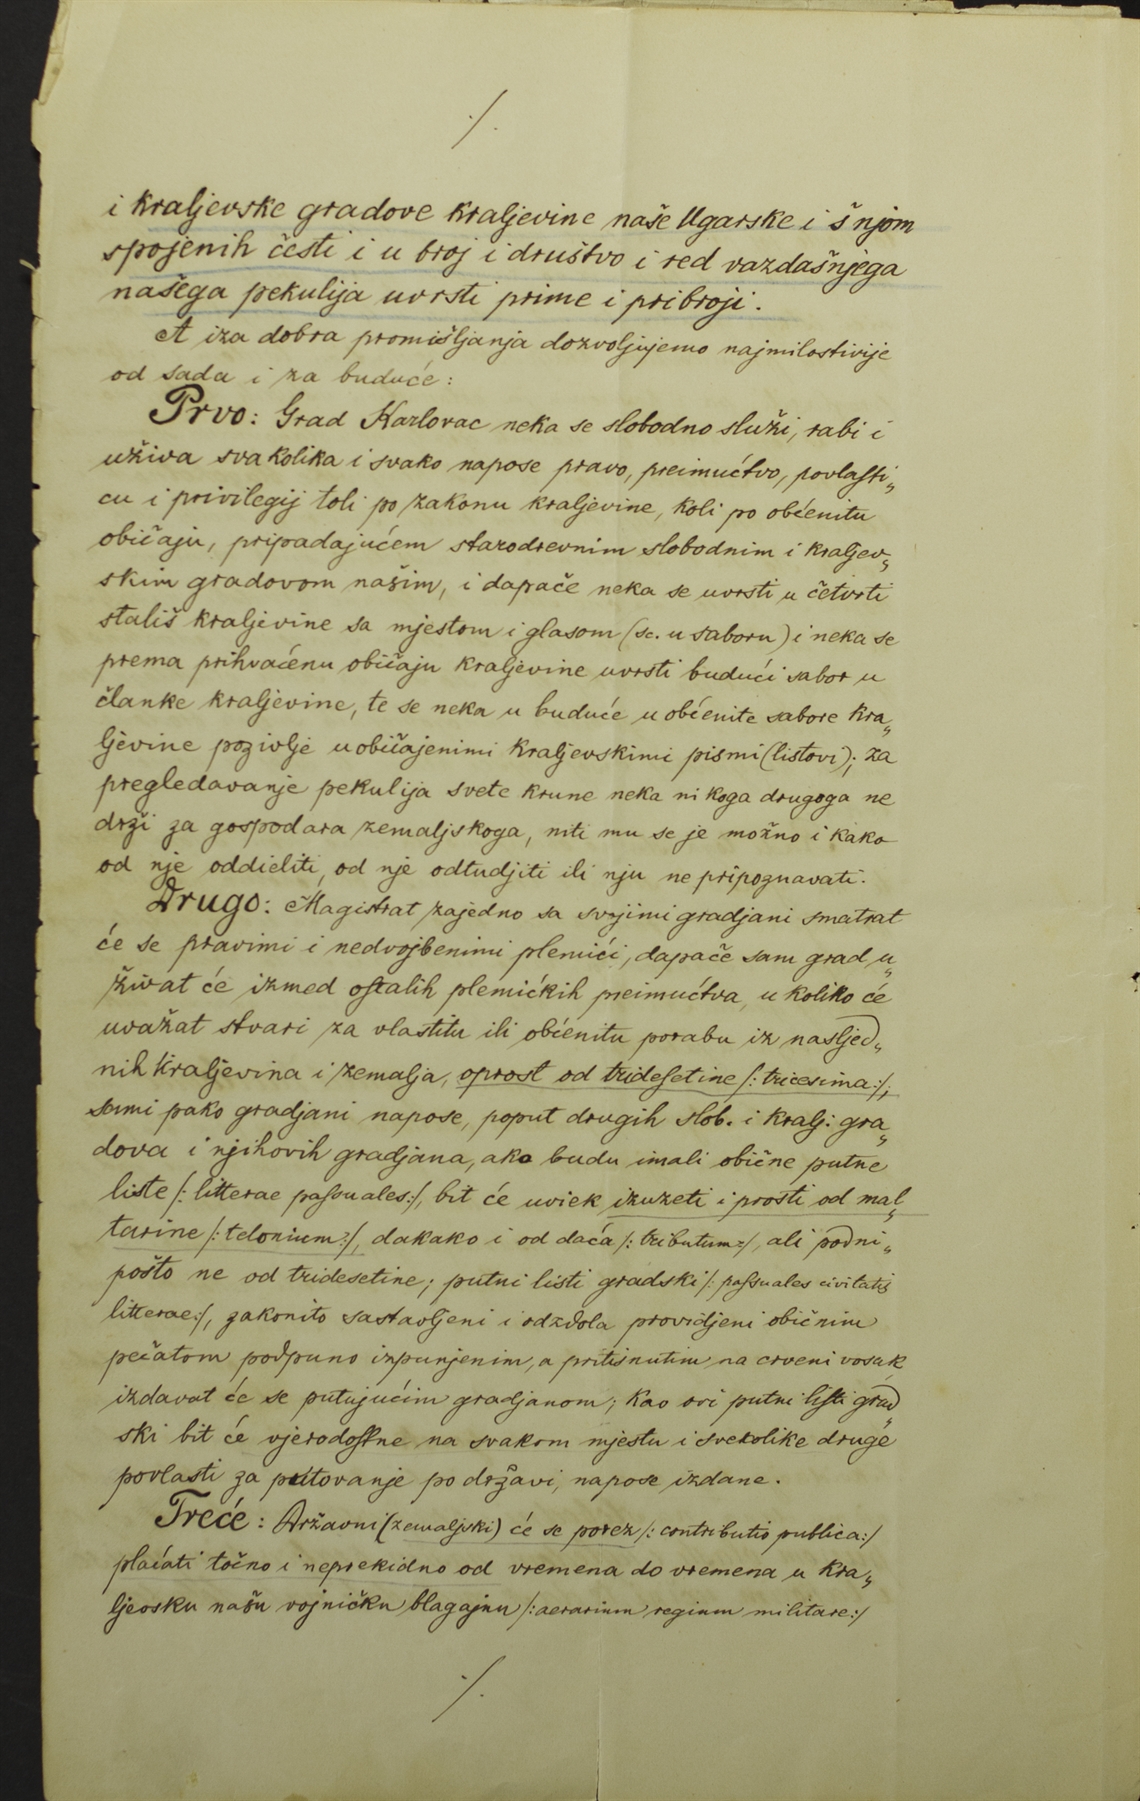 ./.
i kraljevske gradove kraljevine naše Ugarske i š njom
spojenih česti i u broj i društvo i red vazdašnjega
našega pekulija uvrsti prime i pribroji.
A iza dobra promišljanja dozvoljujemo najmilostivije
od sada i za buduće:
Prvo: Grad Karlovac neka se slobodno služi, rabi i
uživa svakolika i svako napose pravo, preimućtvo, povlasti„
cu i privilegij toli po zakonu kraljevine, koli po obćenitu
običaju, pripadajućem starodrevnim slobodnim i kraljev„
skim gradovom našim, i dapače neka se uvrsti u četvrti
stališ kraljevine sa mjestom i glasom (sc. u saboru) i neka se
prema prihvaćenu običaju kraljevine uvrsti budući sabor u
članke kraljevine, te se neka u buduće u obćenite sabore kra„
ljevine pozivlje uobičajenimi kraljevskimi pismi (listovi); za
pregledavanje pekulija svete krune neka nikoga drugoga ne
drži za gospodara zemaljskoga, niti mu se je možno i kako
od nje oddieliti, od nje odtudjiti ili nju ne pripoznavati.
Drugo: Magistrat zajedno sa svojimi gradjani smatrat
će se pravimi i nedvojbenimi plemići, dapače sam grad u„
živat će izmed ostalih plemićkih preimućtva, u koliko će
uvažat stvari za vlastitu ili obćenitu porabu iz nasljed„
nih kraljevina i zemalja, oprost od tridesetine /: tricesima:/;
sami pako gradjani napose, poput drugih slob. i kralj: gra„
dova i njihovih gradjana, ako budu imali obične putne
liste /: litterae passuales:/, bit će uviek izuzeti i prosti od mal„
tarine /: telonium:/, dakako i od daća /: tributum:/, ali podni„
pošto ne od tridesetine; putni listi gradski /: passuales civitatis
litterae:/, zakonito sastavljeni i odzdola providjeni običnim
pečatom podpuno izpunjenim, a pritisnutim na crveni vosak
izdavat će se putujućim gradjanom; kao ovi putni listi grad„
ski bit će vjerodostne na svakom mjestu i svekolike druge
povlasti za putovanje po državi, napose izdane.
Treće: Državni (zemaljski) će se porez /: contributio publica:/
plaćati točno i neprekidno od vremena do vremena u kra„
ljevsku našu vojničku blagajnu /: aerarium regium militare:/
./.